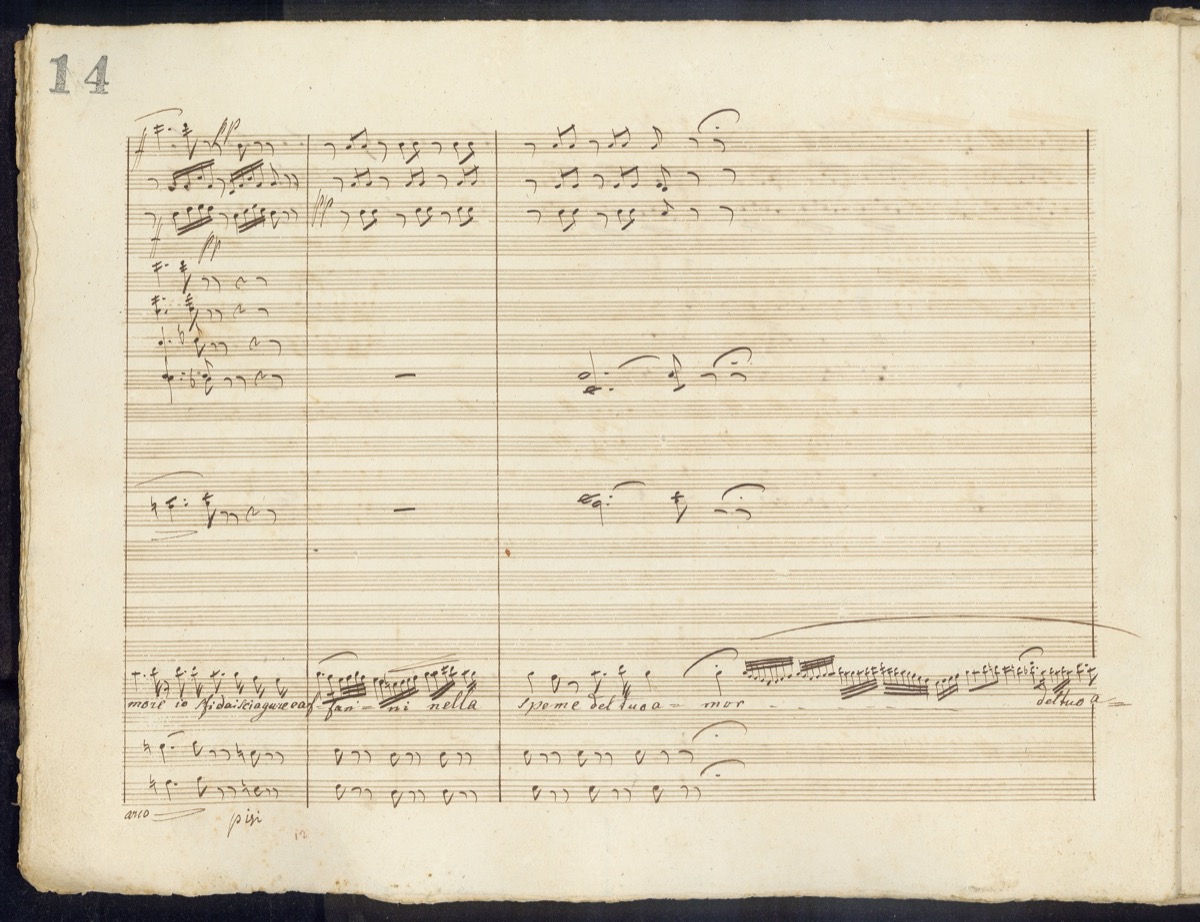 14
f pp
pp
f pp
more io sfidai sciagure e af-fan-ni nella speme del tuo a-mor - - - - del tuo a=
arco pizi
12